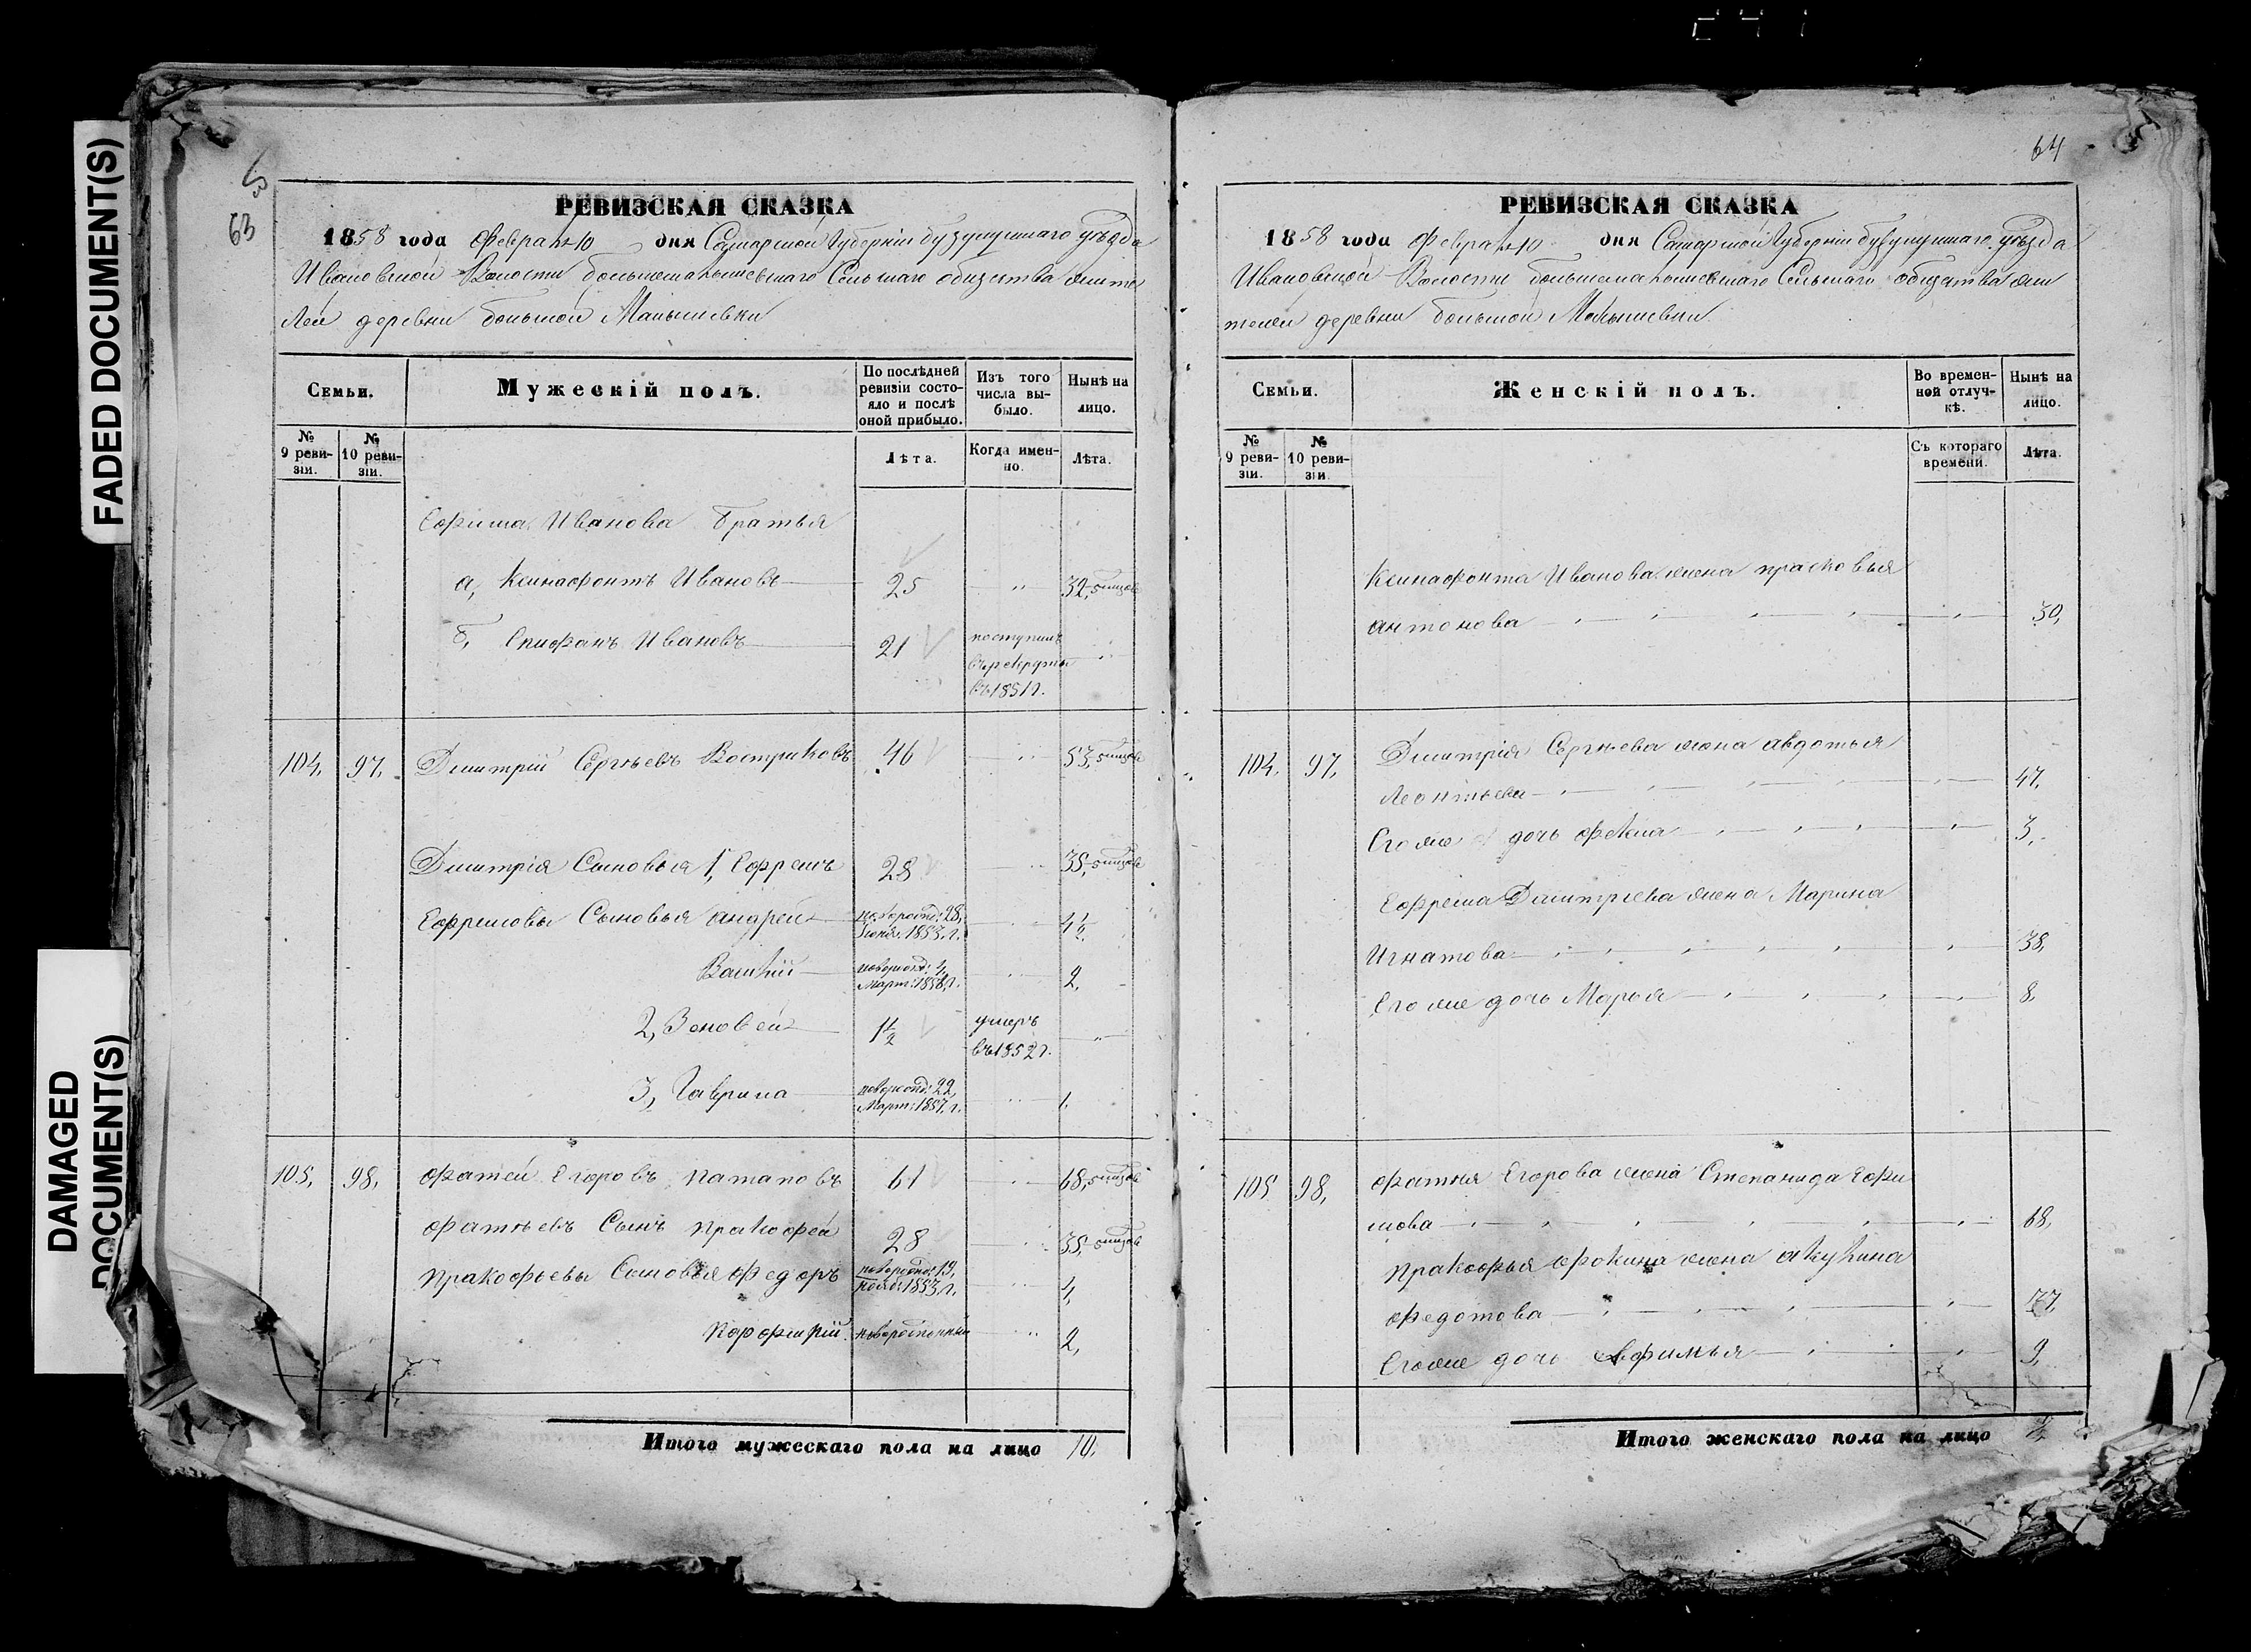 FADED DOCUMENT(S)
DAMAGED
DOCUMENT(S)
63
РЕВИЗСКАЯ СКАЗКА
1858 года Февраля 10 дня Самарской Губерніи бузулуцкаго уѣзда
Ивановской Волости большемалышевскаго Сельскаго общества жите
лей деревни большой Малышевки
Семьи.
Мужескій полъ.
По послѣдней ревизіи состояло и послѣ оной прибыло.
Изъ того числа выбыло.
Нынѣ на лицо.
№ 9 ревизіи.
№ 10 ревизіи.
Лѣта.
Когда именно.
Лѣта.
Ефима Иванова братья
а, Ксинафонтъ Ивановъ 25 " 32,
б, Епифанъ Ивановъ 21 поступилъ въ рекруты въ 1851 г. "
104, 97, Дмитрій Сергѣевъ Востриковъ 46 " 53,
Дмитрія Сыновья 1, Ефремъ 28 " 35,
Ефремовы Сыновья андрей новорожд: 28, 1853, г. " 4½
Василій новорожд: 1, Март: 1856, г. " 2,
2, Зеновей 1½ умеръ въ 1852 г. "
3, Гаврила новорожд: 22, Март: 1857, г. " 1,
105, 98, фатей Егоровъ Патаповъ 61 " 68,
фатѣевъ Сынъ пракофей 28 " 35,
пракофьевы Сыновья федоръ новорожд: 19, нояб: 1853, г. " 4,
Порфирій новорожденный " 2,
Итого мужескаго пола на лицо 10,
64
РЕВИЗСКАЯ СКАЗКА
1858 года Февраля 10 дня Самарской Губерніи бузулуцкаго уѣзда
Ивановской Волости большемалышевскаго Сельскаго общества жи
телей деревни большой Малышевки
Семьи.
Женскій полъ.
Во временной отлучкѣ.
Нынѣ на лицо.
№ 9 ревизіи.
№ 10 ревизіи.
Съ котораго времени.
Лѣта.
Ксинафонта Иванова жена прасковья
антонова 30,
104, 97, Дмитрія Сергѣева жена авдотья
Леонтьева 47,
Егоже дочь фекла 3,
Ефрема Дмитріева жена Марина
Игнатова 38,
Егоже дочь Марья 8,
105 98, фатѣя Егорова жена Степанида Ефи
мова 68,
пракофья жена акулина
федотова 37,
Егоже дочь Афимья 9,
Итого женскаго пола на лицо